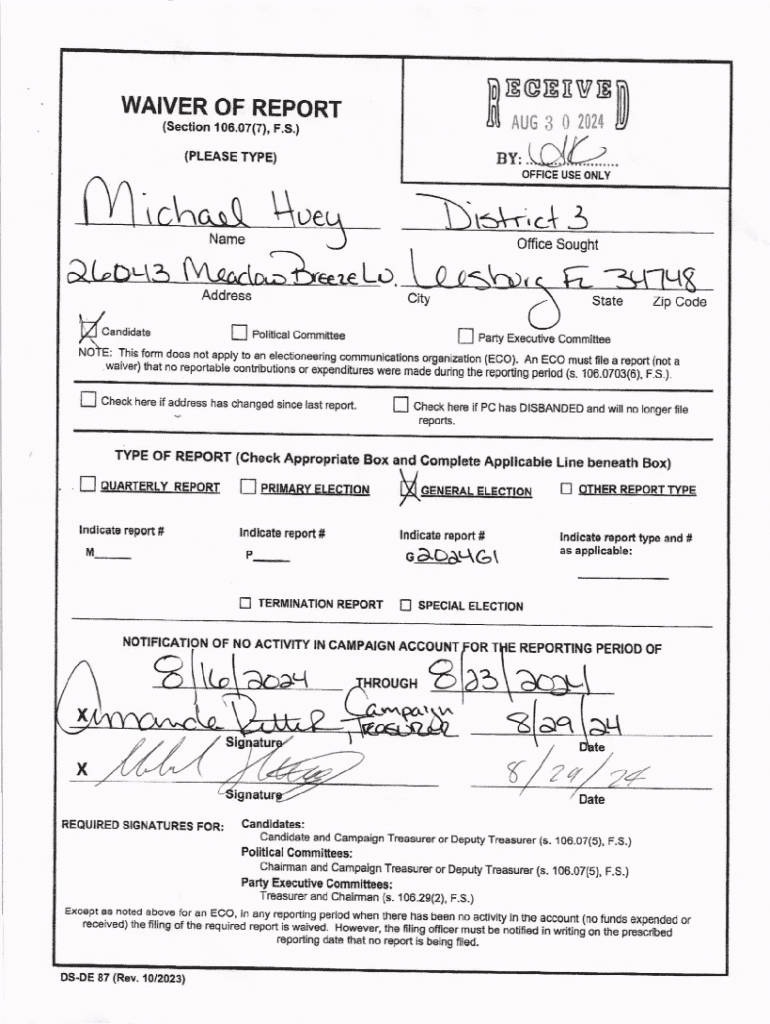 RECEIVED
WAIVER OF REPORT
(Section 106.07(7), F.S.)
AUG 30 2024
(PLEASE TYPE)
BY:
OFFICE USE ONLY
Michael Huey District 3
Name Office Sought
26043 Meadow Breeze Ln. Leesburg FL 34748
Address City State Zip Code
Candidate Political Committee Party Executive Committee
NOTE: This form does not apply to an electioneering communications organization (ECO). An ECO must file a report (not a
waiver) that no reportable contributions or expenditures were made during the reporting period (s. 106.0703(6), F.S.).
Check here if address has changed since last report. Check here if PC has DISBANDED and will no longer file
reports.
TYPE OF REPORT (Check Appropriate Box and Complete Applicable Line beneath Box)
QUARTERLY REPORT PRIMARY ELECTION GENERAL ELECTION OTHER REPORT TYPE
Indicate report # Indicate report # Indicate report # Indicate report type and #
as applicable:
M P G 2024G1
TERMINATION REPORT SPECIAL ELECTION
NOTIFICATION OF NO ACTIVITY IN CAMPAIGN ACCOUNT FOR THE REPORTING PERIOD OF
8/16/2024 THROUGH 8/23/2024
X Amanda Campaign Treasurer 8/29/24
Signature Date
X 8/29/24
Signature Date
REQUIRED SIGNATURES FOR: Candidates:
Candidate and Campaign Treasurer or Deputy Treasurer (s. 106.07(5), F.S.)
Political Committees:
Chairman and Campaign Treasurer or Deputy Treasurer (s. 106.07(5), F.S.)
Party Executive Committees:
Treasurer and Chairman (s. 106.29(2), F.S.)
Except as noted above for an ECO, in any reporting period when there has been no activity in the account (no funds expended or
received) the filing of the required report is waived. However, the filing officer must be notified in writing on the prescribed
reporting date that no report is being filed.
DS-DE 87 (Rev. 10/2023)